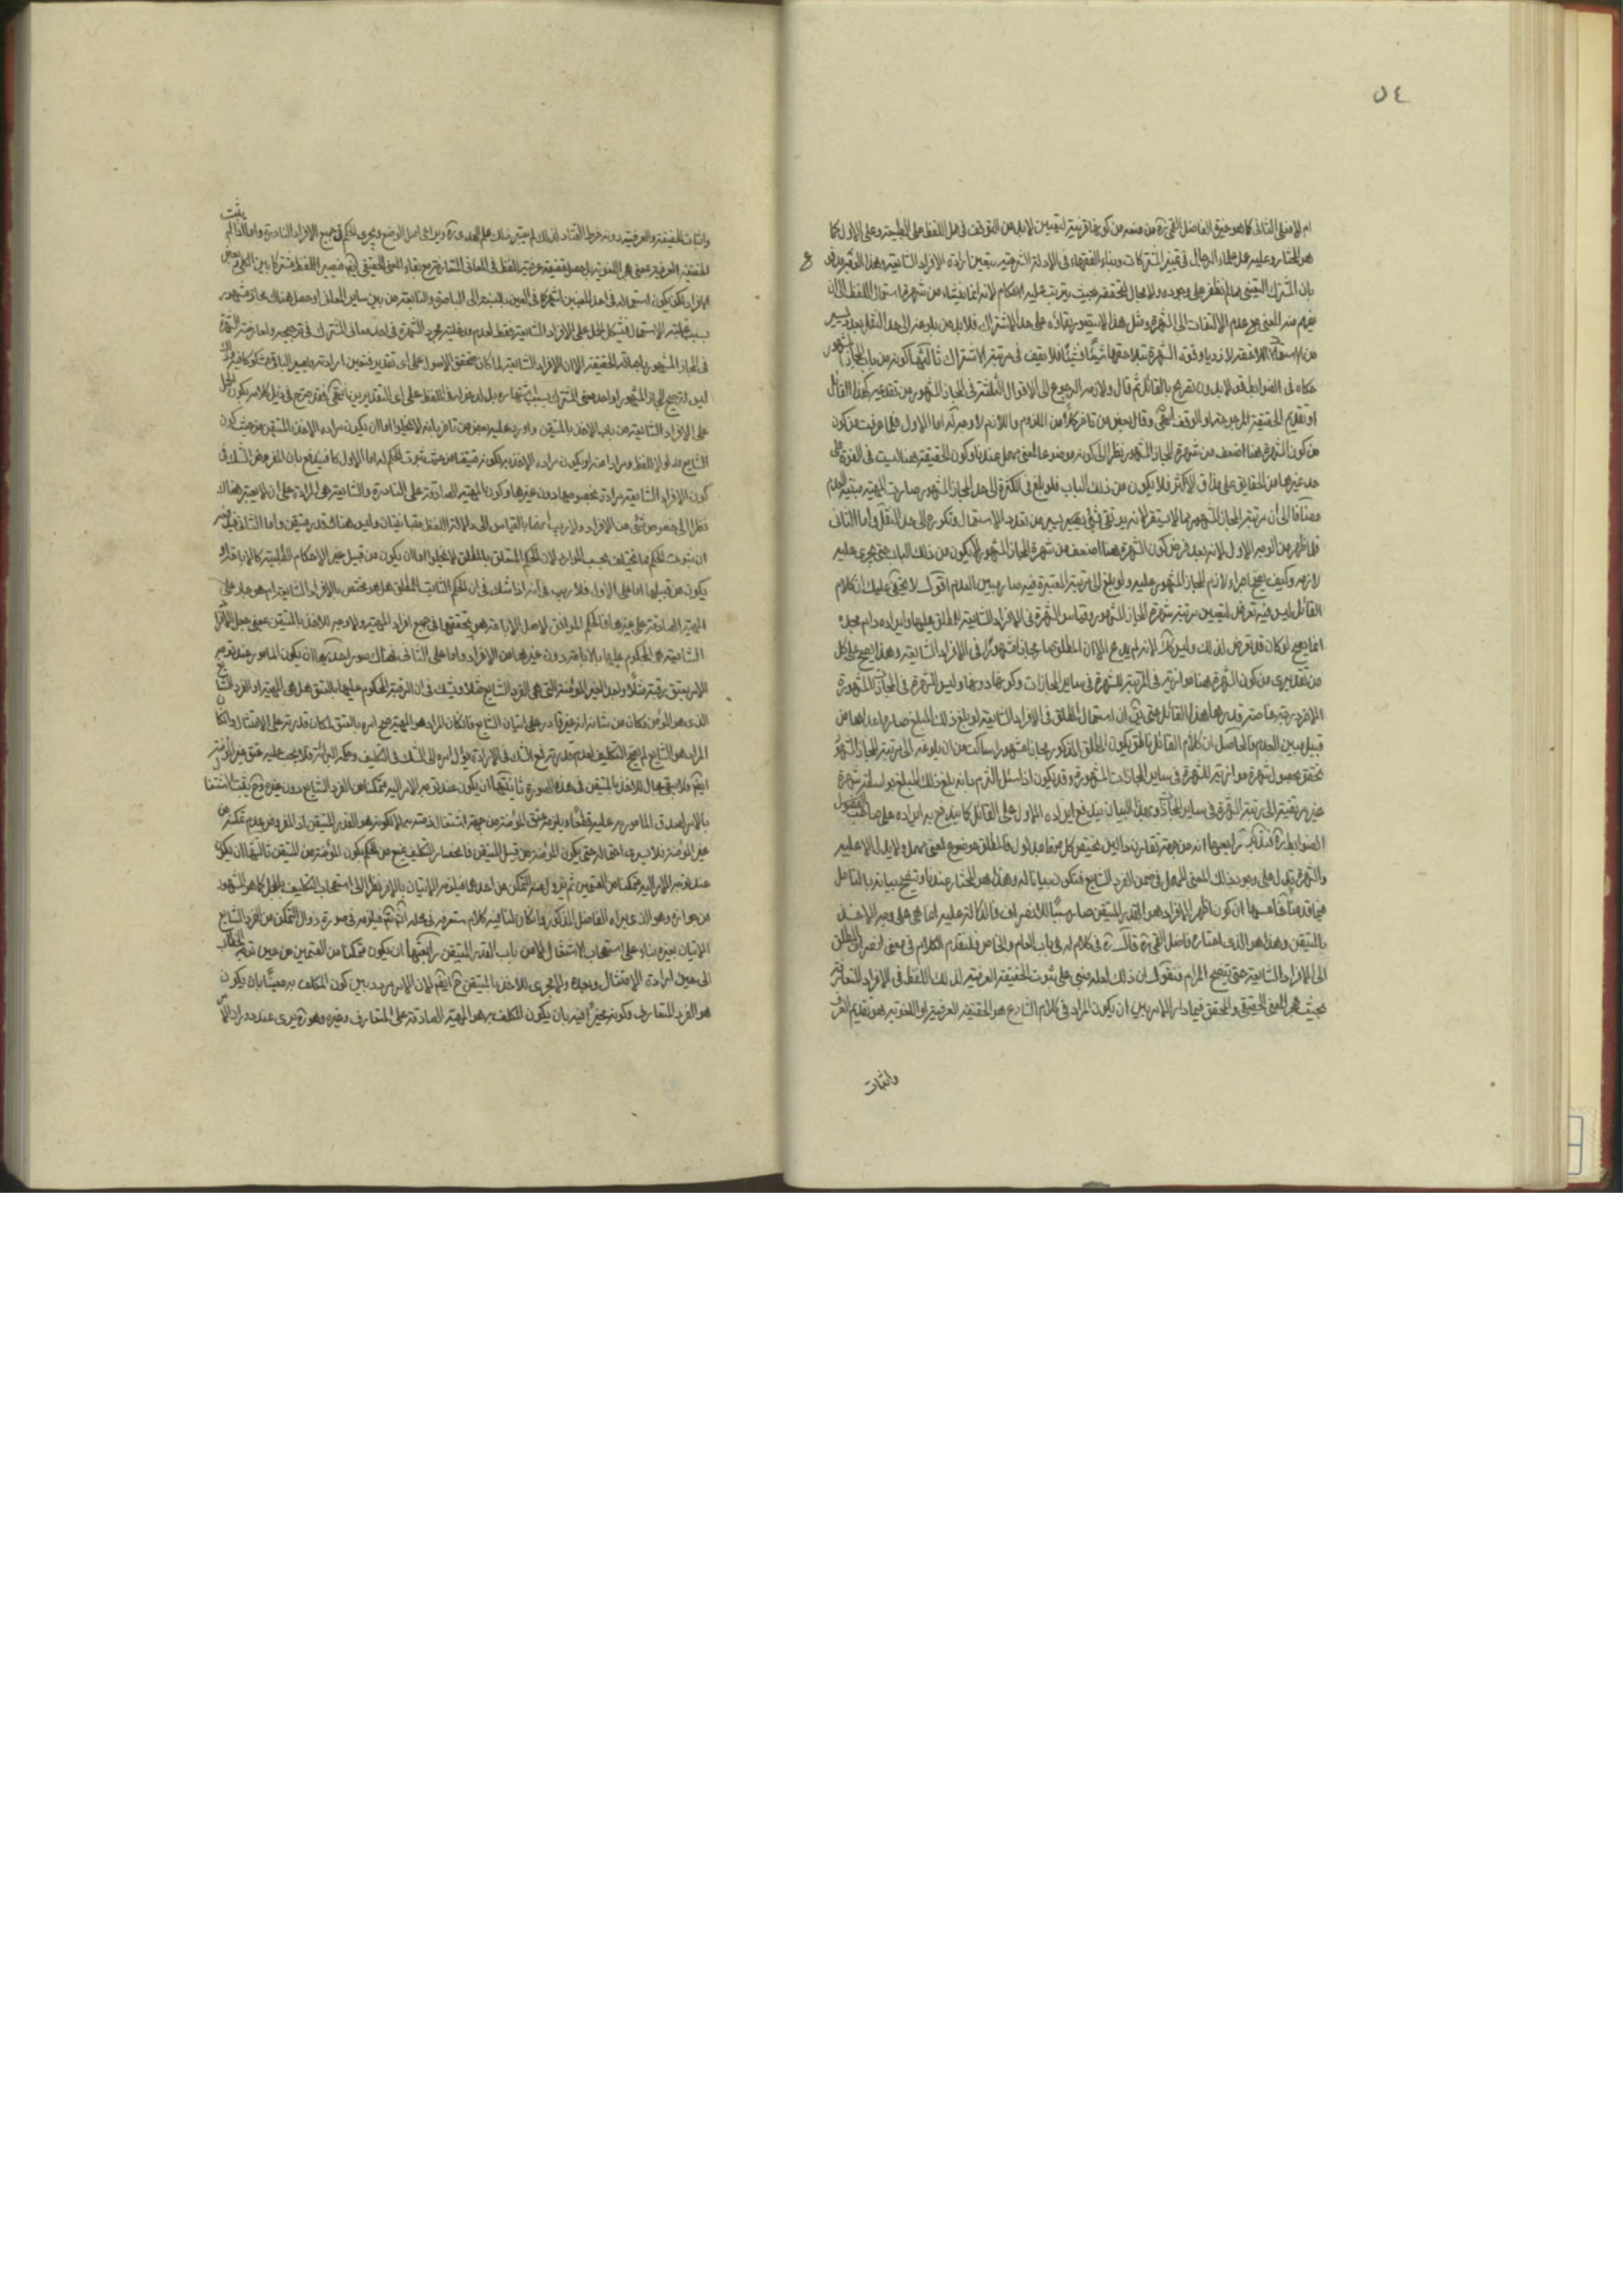 ٥٤
ام لا فعلى الثانى كما هو خيرة الفاضل القمى ره من منعه من كون قرينة لتعيين لا بد من التوقف فى حمل اللفظ على الطبيعة وعلى الاول كما
هو المختار وعليه عمل علماء الرجال فى تميز المشتركات وبناء الفقهاء فى الادلة الشرعية يتعين ارادة الافراد الشايعة وهذا
بان المشترك التعينى مما لم نظفر على وجوده ولا مجال لتحققه بحيث يترتب عليه الاحكام لانه انما ينشاء من شهرة استعمال اللفظ الى ان
يفهم منه المعنى مع عدم الالتفات الى الشهرة ومثل هذا لا يتصور بقاؤه على حد الاشتراك فلا بد من بلوغه الى حد النقل بعد يسير
من لازدياد وقوة الشهرة بتلاحقها شيئا فشيئا فلا يقف فى مرتبة الاشتراك ثالثها كونه من باب المجاز المشهور
حكاه فى الضوابط قولا بدون تصريح بالقائل ثم قال ولازمه الرجوع الى الاقوال الثلثة فى المجاز المشهور من تقديمه كهذا القائل
او تقديم الحقيقة المرجوحة او الوقف انتهى وقال بعض من تاخر كلا من اللزوم واللازم لا وجه له اما الاول فلما عرفت من كون
من كون الشهرة هنا اضعف من شهرة المجاز المشهور نظرا الى كونه موضوعا لمعنى مهمل عندنا وكون الحقيقة هنا ليست فى القوة على
حد غيرها من الحقايق على مذاق الاكثر فلا يكون من ذلك الباب فلو بلغ فى الكثرة الى حد المجاز المشهور صارت المهية مبتية العدم
مضافا الى أن مرتبة المجاز المشهور مما لا يستقر لانه يرتقى بشئ يسير من تعدد الاستعمال وتكرره الى حد النقل واما الثانى
فلما ظهر من الوجه الاول لانه بعد فرض كون الشهرة هنا اضعف من شهرة المجاز المشهور لا يكون من ذلك الباب حتى يجرى عليه
لازمه وكيف يصح اجراء لازم المجاز المشهور عليه ولو بلغ الى مرتبة المعتبرة فيه صار مبين العدم اقول لا يخفى عليك ان كلام
القائل ليس فيه تعرض لتعيين مرتبة شهرة المجاز المشهور وقياس الشهرة فى الافراد الشايعة المطلق عليها وايراده دام مجده
انما يصح لو كان قد تعرض لذلك وليس كلا لانه لم يدع الا ان المطلق صار مجازا مشهورا فى الافراد الشايعة وهذا يصح على كل
من تقديرى من كون الشهرة هنا موازية فى المرتبة للشهرة فى ساير المجازات وكونها دونها وليس للشهرة فى المجازات المشهورة
الا فرد مرتبة خاصة قدرها هذا القائل حتى يق ان استعمال المطلق فى الافراد الشايعة لو بلغ ذلك المبلغ صار ما عداها من
قبيل مبين العدم فالحاصل ان كلام القائل ناطق بكون المطلق المذكور مجازا مشهورا ساكت من ان بلوغه الى مرتبة المجاز المشهور
تحقق بحصول شهرة موازية للشهرة فى ساير المجازات المشهورة وقد يكون اذا سئل التزم بانه بلغ ذلك المبلغ بواسطة شهرة
غير مرتقية الى مرتبة الشهرة فى ساير المجازات وبهذا البيان يندفع ايراده الاول على القائل كما يندفع به ايراده على صاحب الفصول
الضوابط ره فتدبر رابعها انه من جهة تقارن دالين يختص كل منهما بمدلول فالمطلق موضوع لمعنى مهمل ولا يدل الا عليه
والشهرة تدل على وجود ذلك المعنى المهمل فى ضمن الفرد الشايع فتكون بيانا له وهذا هو المختار عندنا وتتضح بيانه بالتامل
فيما قدمنا خامسها ان كون اظهر الافراد هو القدر المتيقن صار سببا للانصراف فالدلالة عليه انما هى على وجه الاخذ
بالمتيقن وهذا هو الذى اختاره فاضل القمى ره قال ره فى كلام له فى باب العام والخاص فلنقدم الكلام فى معنى انصراف المطلق
الى الافراد الشايعة حتى يتضح المرام فنقول ان ذلك لعله مبنى على ثبوت الحقيقة العرفية لذلك اللفظ فى الافراد المتعارفة
بحيث هجر المعنى الحقيقى والمحقق فيما دار الامر بين ان يكون المراد فى كلام الشارع هو الحقيقة العرفية او اللغوية هو تقديم العرف
واثبات
واثبات الحقيقة العرفية دونه خرط القتاد لذلك لم يعتبر ذلك علم الهدى ره وبراعى اصل الوضع ويجرى الحكم فى جميع الافراد النادرة واما اذا لم يثبت
الحقيقة العرفية بمعنى هجر اللغوية بل حصل حقيقة عرفية للفظ فى المعانى المتعارفة مع بقاء المعنى الحقيقى ايض فيصير اللفظ مشتركا بين الكلى وبعض
افراد لكن يكون استعماله فى احد المعنيين اشهر كما فى العين بالنسبة الى الباصرة والنابعة من بين ساير المعانى او حصل هناك مجاز مشهور
بسبب غلبة الاستعمال فيشكل الحمل على الافراد الشايعة فقط لعدم مدخلية مجرد الشهرة فى احد معانى المشترك فى ترجيحه ولمعارضة الشهرة
فى المجاز المشهور باصالة الحقيقة الا ان الافراد الشايعة لما كان متحقق الاصول على اى تقدير فتعين ارادته ويصير الباقى مشكوكا فيه
ليس لترجيح المجاز المشهور او احد معنى المشترك بسبب اشتهاره بل لدخوله فى اللفظ على اى التقديرين انتهى فقد صرح فى ذيل كلامه بكون الحمل
على الافراد الشايعة من باب الاخذ بالمتيقن واورد عليه بعض من تاخر بانه لا يخلو اما ان يكون مراده الاخذ بالمتيقن من حيث كون
الشايع مدلولا للفظ ومرادا منه او يكون مراده الاخذ به لكونه متيقنا من حيث ثبوت الحكم له اما الاول فيندفع بان المفروض الشك فى
كون الافراد الشايعة مرادة بخصوصها دون غيرها وكون المهية الصادقة على النادرة والشايعة هى المرادة على ان لا يعتبر هناك
نظرا الى خصوص شئ من الافراد ولا ريب انهما بالقياس الى دلالة اللفظ متباينان وليس هناك قدر متيقن واما الثانى
ان ثبوت الحكم مما يختلف بحسب الموارد لان الحكم المتعلق بالمطلق لا يخلو اما ان يكون من قبيل غير الاحكام الطلبية كالاباحة او
يكون من قبيلها اما على الاول فلا ريب فى أنه اذا شك فى ان الحكم الثابت للمطلق هل هو مختص بالافراد الشايعة ام هو جار على
المهية الصادقة على غيرها فالحكم الموافق لاصل الاباحة هو تحققها فى جميع افراد المهية ولا وجه للاخذ بالمتيقن بمعنى جعل الافراد
الشايعة هى المحكوم عليها بالاباحة دون غيرها من الافراد واما على الثانى فهناك صور احديها ان يكون المامور عند توجه
الامر بعتق رقبة مثلا واجد الغير المؤمنة التى هى الفرد الشايع مثلا ويشك فى ان الرقبة المحكوم عليها بالعتق هل هى المهية او الفرد الشايع
الذى هو المؤمن فكان من شانه انه غير قادر على اتيان الشايع فان كان المراد هو المهية صح امره بالعتق لمكان قدرته على الامتثال وان كان
المراد هو الشايع لم يصح التكليف لعدم قدرته فيرجع الشك فى الارادة يؤل امره الى الشك فى التكليف وحكمه البرائة فلا يجب عليه عتق غير المؤمنة
ايض فلا يبقى مجال للاخذ بالمتيقن فى هذه الصورة ثانيتها ان يكون عند توجه الامر اليه متمكنا من الفرد الشايع دون غيره وح يثبت اشتغاله
بالامر لصدق المامور به عليه قطعا ويلزمه عتق المؤمنة من جهة اشتغال ذمته به لا لكونه هو القدر المتيقن اذ المفروض عدم تمكنه من
غير المؤمنة فلا يسرى احتمال حتى يكون المؤمنة من قبيل المتيقن فانحصار التكليف يمنع من الحكم بكون المؤمنة من المتيقن ثالثها ان يكون
عند توجه الامر اليه متمكنا من القسمين ثم يزول عنه التمكن من احدهما فيلزمه الاتيان بالاخر نظرا الى استصحاب التكليف بالمجمل كما هو المشهور
من جوازه وهو الذى يراه الفاضل المذكور وان كان لنا فيه كلام ستعرفه فى محله انش تع فيلزمه فى صورة زوال التمكن من الفرد الشايع
الاتيان بغيره بناء على استصحاب الاشتغال لا من باب القدر المتيقن رابعتها ان يكون متمكنا من القسمين من حين توجه الخطاب
الى حين ارادة الامتثال وبعده ولا مجرى للاخذ بالمتيقن ح ايض لان الامر مردد بين كون المكلف به معينا بان يكون
هو الفرد المتعارف وكونه مخيرا فيه بان يكون المكلف به هو المهية الصادقة على المتعارف وغيره وهو ره يرى عند دوران الامر